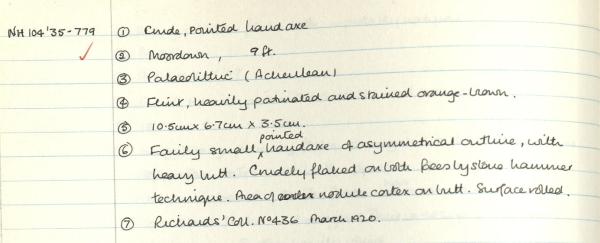 NH 104 '35-779 ① Crude, pointed handaxe
② Moordown, 9ft.
③ Palaeolithic (Acheulean)
④ Flint, heavily patinated and stained orange-brown.
⑤ 10.5cm x 6.7cm x 3.5cm.
⑥ Fairly small, pointed handaxe of asymmetrical outline, with
heavy butt. Crudely flaked on both faces by stone hammer
technique. Area of nodule cortex on butt. Surface rolled.
⑦ Richards' Coll. Nº 436 March 1920.